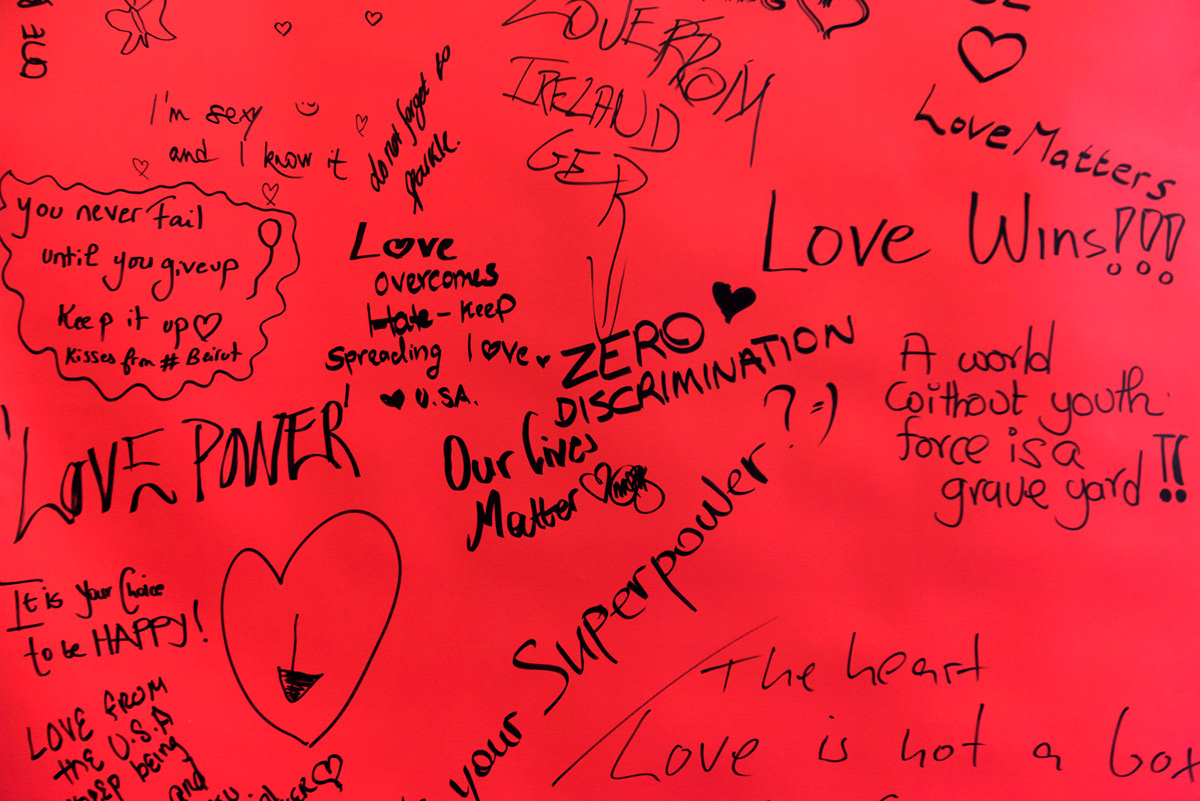 LOVE FROM
IRELAND
GER
Love Matters
I'm sexy
and I know it
do not forget to
sparkle.
Love Wins!!!
you never Fail
until you giveup
Keep it up
Kisses from # Beirut
Love
overcomes
Hate - Keep
Spreading love
U.S.A.
ZERO
DISCRIMINATION
A world
without youth
force is a
grave yard !!
'LOVE POWER'
Our lives
Matter
your Superpower? =)
It is your Choice
to be HAPPY!
The heart
Love is not a box
LOVE FROM
the U.S.A
KEEP being
and